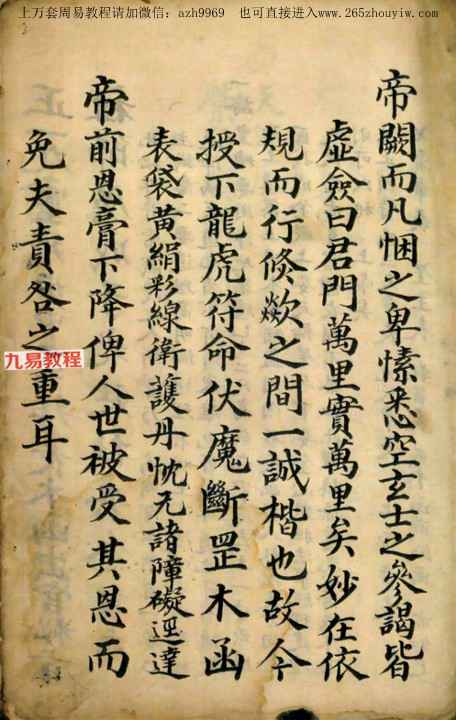 上万套周易教程请加微信：azh9969 也可直接进入www.265zhouyiw.com
帝闕而凡悃之卑愫悉空玄士之參謁皆
虛僉曰君門萬里實萬里矣妙在依
規而行倏欻之間一誠楷也故今
授下龍虎符命伏魔斷罡木函
表袋黄絹彩線衛護丹忱无諸障礙逕達
帝前恩膏下降俾人世被受其恩而
免夫責咎之重耳
九易教程